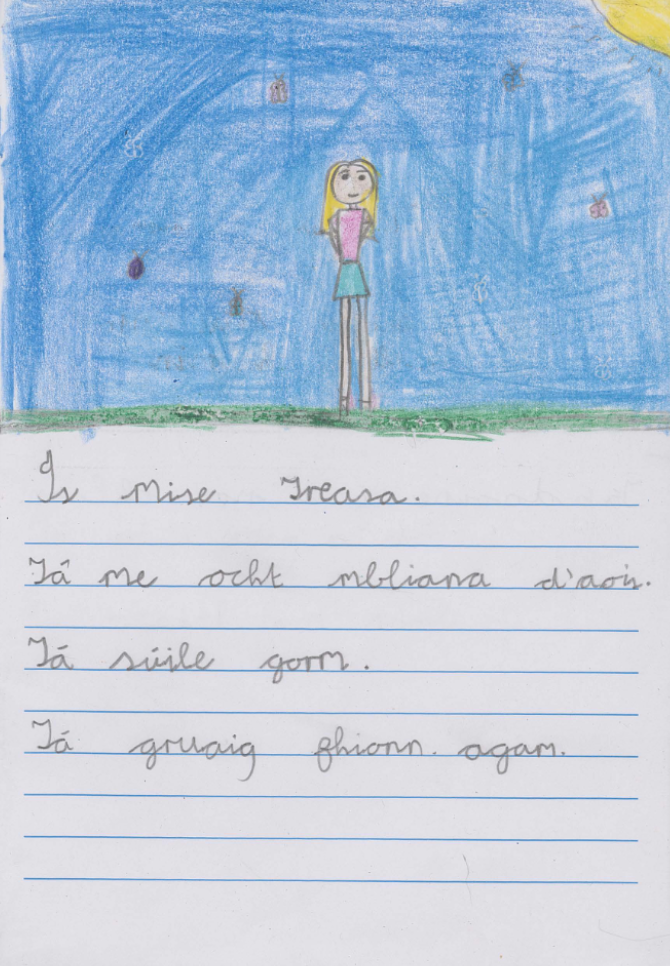 Is mise Treasa.
Tá me ocht mbliana d'aois.
Tá súile gorm.
Tá gruaig fhionn. agam.